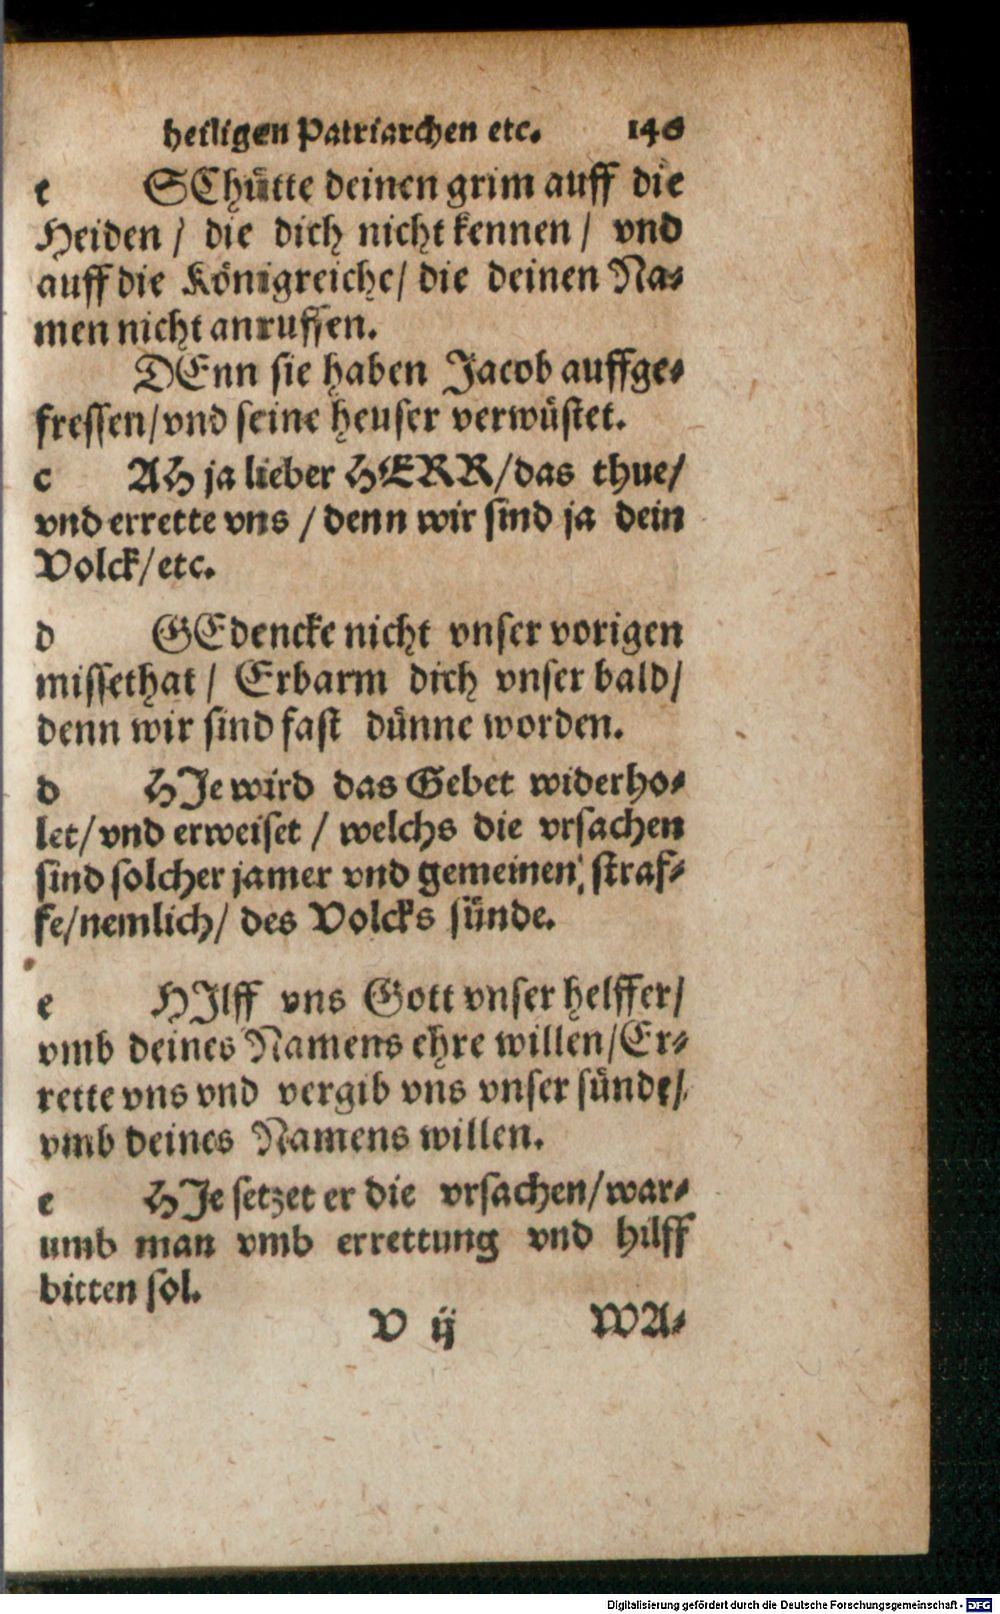 heiligen Patriarchen etc. 146
c SChütte deinen grim auff die
Heiden / die dich nicht kennen / vnd
auff die Königreiche / die deinen Na-
men nicht anruffen.
DEnn sie haben Jacob auffge-
fressen / vnd seine heuser verwüstet.
c AH ja lieber HERR / das thue /
vnd errette vns / denn wir sind ja dein
Volck / etc.
d GEdencke nicht vnser vorigen
missethat / Erbarm dich vnser bald /
denn wir sind fast dünne worden.
d HJe wird das Gebet widerho-
let / vnd erweiset / welchs die vrsachen
sind solcher jamer vnd gemeinen straf-
fe / nemlich / des Volcks sünde.
e HJlff vns Gott vnser helffer /
vmb deines Namens ehre willen / Er-
rette vns vnd vergib vns vnser sünde /
vmb deines Namens willen.
e HJe setzet er die vrsachen / war-
umb man vmb errettung vnd hilff
bitten sol.
V ij WA-
Digitalisierung gefördert durch die Deutsche Forschungsgemeinschaft - DFG